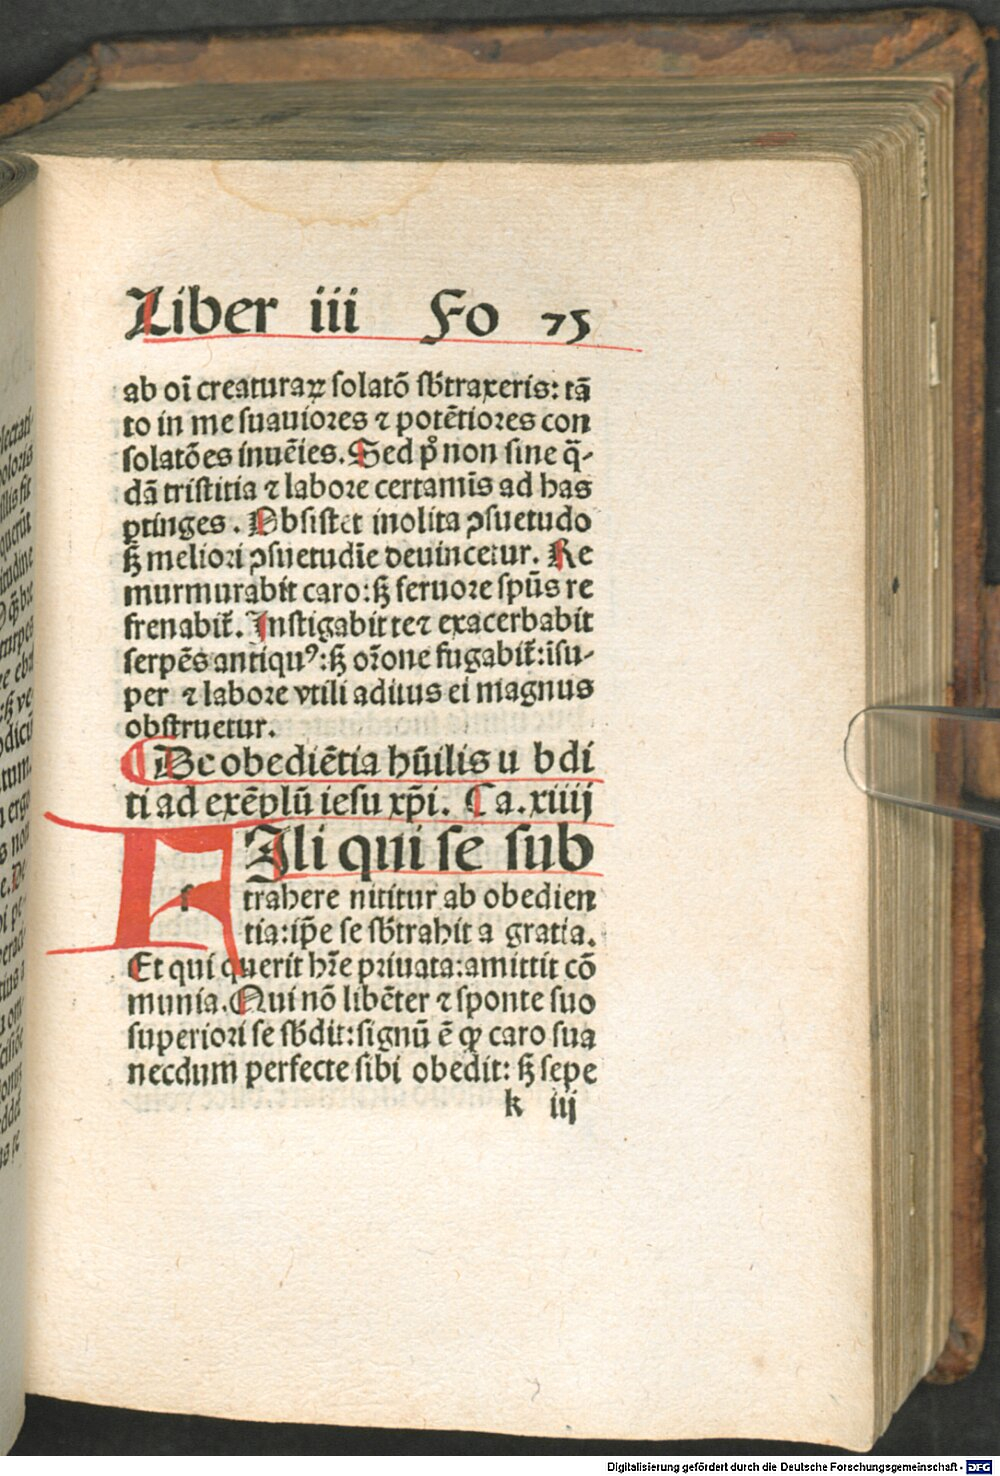 Liber iii Fo 75
ab oī creaturaꝝ solatō sb̄traxeris: tā
to in me suauiores ⁊ potētiores con
solatōes inuēies. Sed pͦ non sine q̄-
dā tristitia ⁊ labore certamīs ad has
ꝑtinges. Obsistet inolita ꝯsuetudo
sꝫ meliori ꝯsuetudīe deuincetur. Re
murmurabit caro: sꝫ feruore spūs re
frenabit̄. Instigabit te ⁊ exacerbabit
serpēs antiquꝰ: sꝫ or̄one fugabit̄: īsu-
per ⁊ labore vtili aditus ei magnus
obstruetur.
De obediētia hūilis u bdi
ti ad exēplū iesu xp̄i. Ca. xiiij
FIli qui se sub
trahere nititur ab obedien
tia: ip̄e se sb̄trahit a gratia.
Et qui querit hr̄e priuata: amittit cō
munia. Qui nō libēter ⁊ sponte suo
superiori se sb̄dit: signū ē ꝙ caro sua
necdum perfecte sibi obedit: sꝫ sepe
k iij
Digitalisierung gefördert durch die Deutsche Forschungsgemeinschaft - DFG